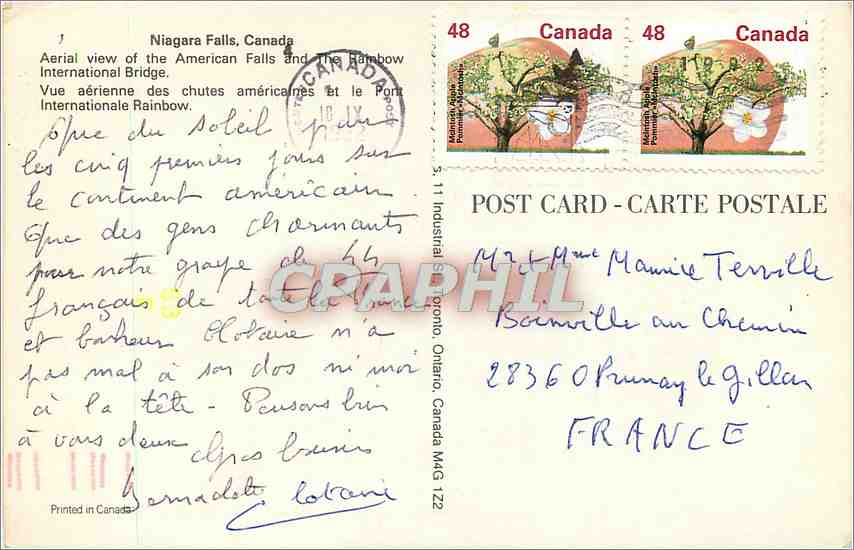 Niagara Falls, Canada
Aerial view of the American Falls and The Rainbow
International Bridge.
Vue aérienne des chutes américaines et le Pont
Internationale Rainbow.
Que du soleil pour
les cinq premiers jours sur
le continent américain.
Que des gens charmants
pour notre groupe de 44
français de toute la France
et bonheur Clotaire n'a
pas mal à son dos ni moi
à la tête - Pensons bien
à vous deux
Gros baisers
Bernadette Clotaire
Printed in Canada
11 Industrial St. Toronto, Ontario, Canada M4G 1Z2
CANADA
18 IX
48 Canada
McIntosh Apple
Pommier «McIntosh»
48 Canada
1992
McIntosh Apple
Pommier «McIntosh»
POST CARD - CARTE POSTALE
Mr et Mme Maurice Terville
Boinville au Chemin
28360 Prunay le Gillon
FRANCE
CPARHIL